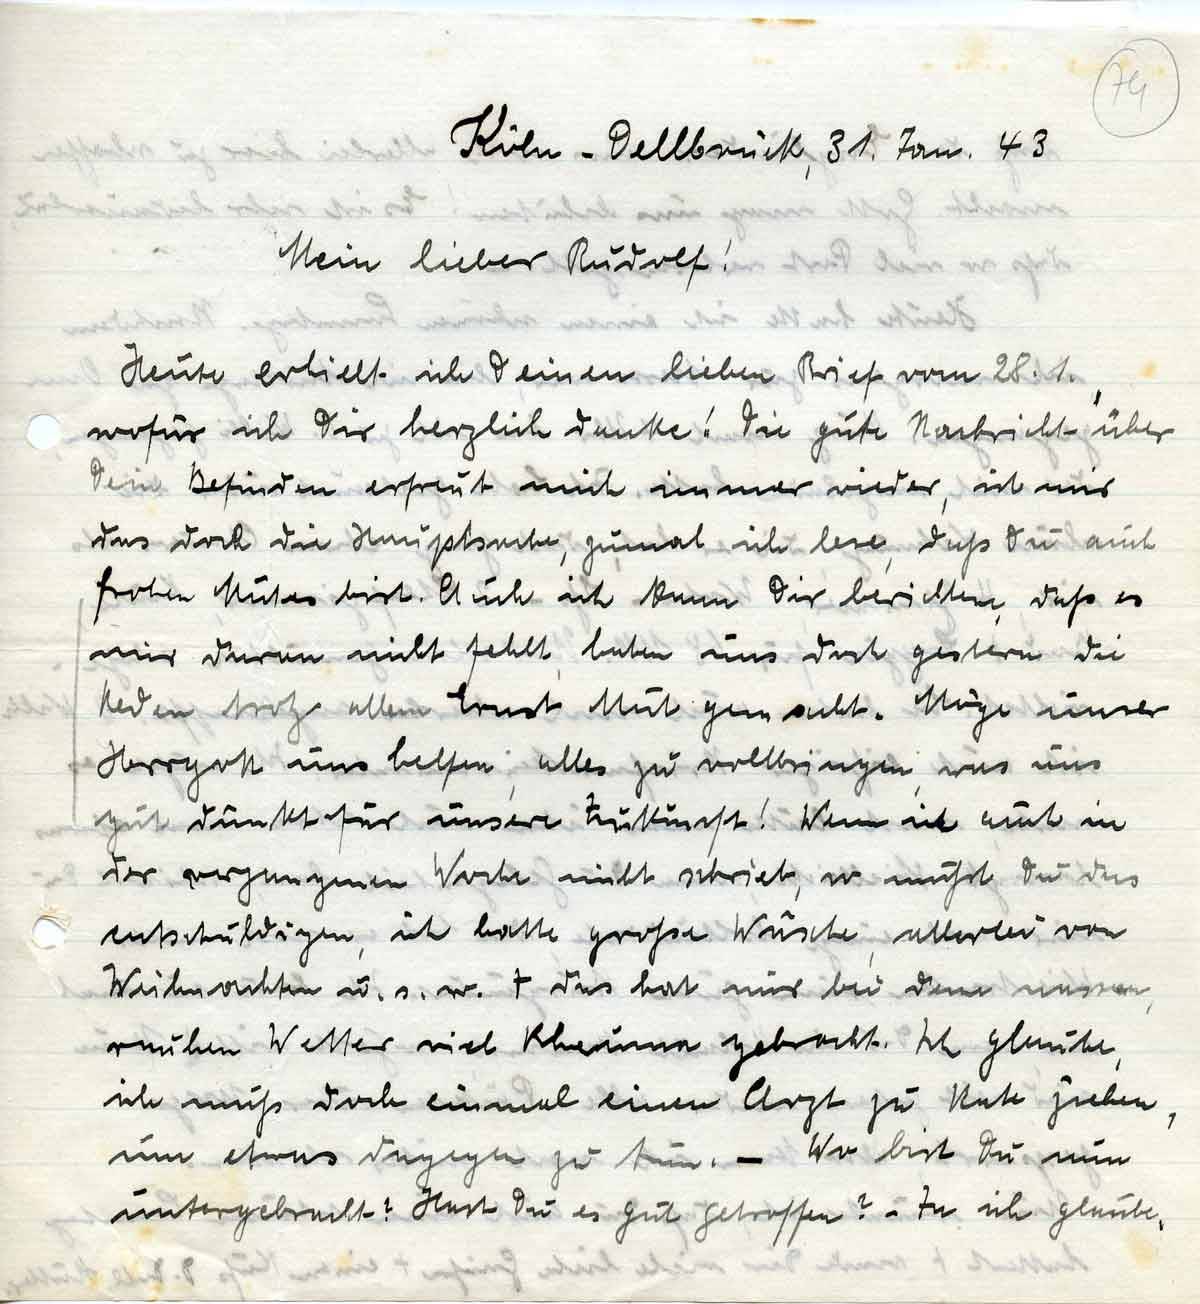 74
Köln-Dellbrück, 31. Jan. 43
Mein lieber Rudolf!
Heute erhielt ich Deinen lieben Brief vom 28.1.,
wofür ich Dir herzlich danke! Die gute Nachricht über
Dein Befinden erfreut mich immer wieder, ist mir
das doch die Hauptsache, zumal ich lese, daß Du auch
frohen Mutes bist. Auch ich kann Dir berichten, daß es
mir daran nicht fehlt, haben uns doch gestern die
Reden trotz allem Ernst Mut gemacht. Möge unser
Herrgott uns helfen, alles zu vollbringen, was uns
gut dünkt für unsere Zukunft! Wenn ich auch in
der vergangenen Woche nicht schrieb, so mußt Du das
entschuldigen, ich hatte große Wäsche, allerlei von
Weihnachten u.s.w. + das hat mir bei dem nassen,
rauhen Wetter viel Rheuma gebracht. Ich glaube,
ich muß doch einmal einen Arzt zu Rate ziehen,
um etwas dagegen zu tun. – Wo bist Du nun
untergebracht? Hast Du es gut getroffen? – Ja ich glaube,